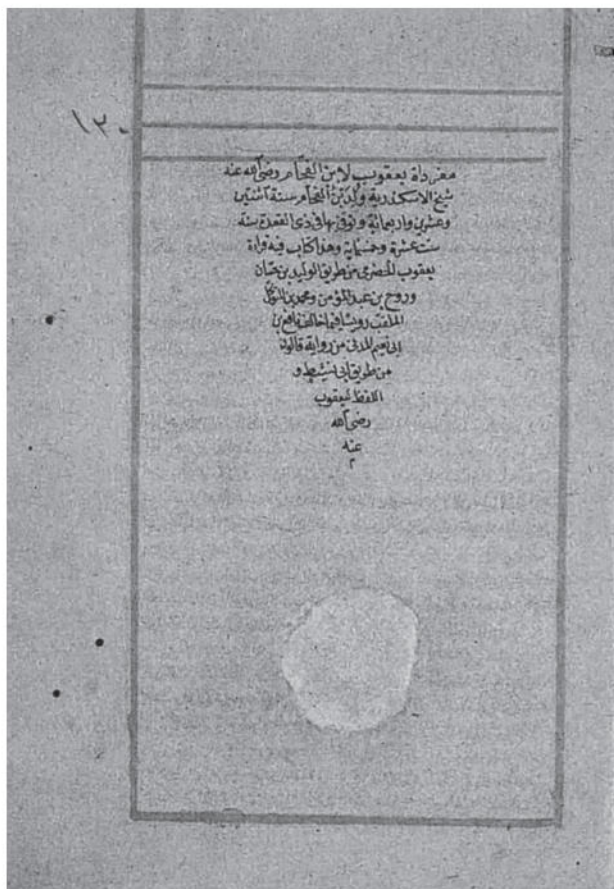 ١٣٠
مفرداة يعقوب لابن الفحام رضى الله عنه
شيخ الاسكندرية ولد بن الفحام سنة اثنتين
وعشرين واربعمائة وتوفى بها فى ذى القعدة سنة
ست عشرة وخمسماية وهذا كتاب فيه قراة
يعقوب الحضرمى من طريق الوليد بن حسان
وروح بن عبد المؤمن ومحمد بن المتوكل
الملقب رويسا فيما خالف نافع بن
ابى نعيم المدنى من رواية قالون
من طريق ابى نشيط و
اللفظ ليعقوب
رضى الله
عنه
م